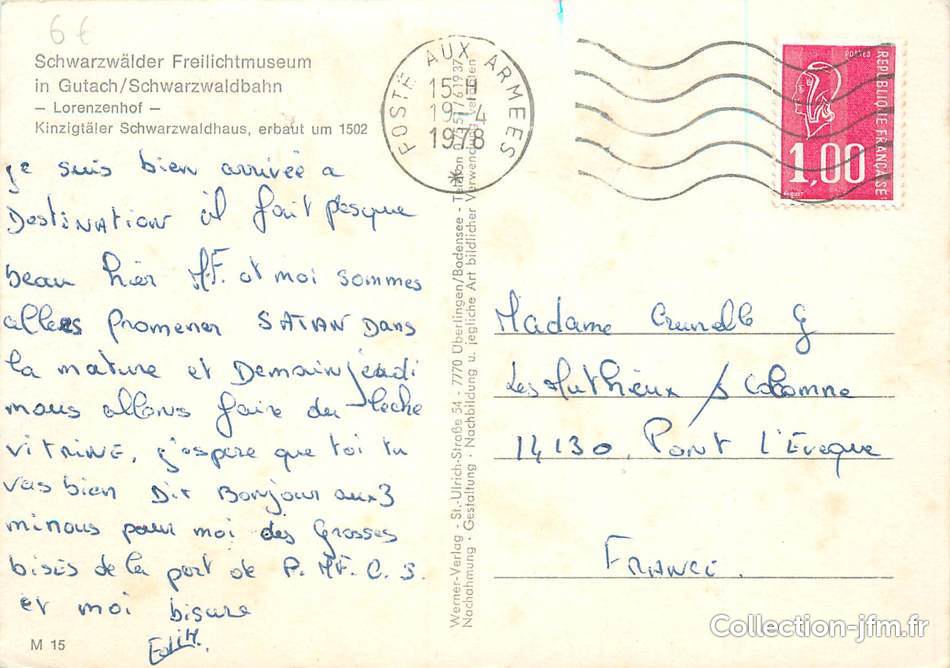 6 €
Schwarzwälder Freilichtmuseum
in Gutach/Schwarzwaldbahn
– Lorenzenhof –
Kinzigtäler Schwarzwaldhaus, erbaut um 1502
je suis bien arrivée a
Destination il fait presque
beau hier MF. et moi sommes
allees promener SATAN Dans
la nature et Demain jeudi
nous allons faire du leche
VITRINE, j'espere que toi tu
vas bien Dit Bonjour aux 3
minous pour moi des Grosses
bises de la part de P. MF. C. S.
et moi bisure
Edith.
M 15
Werner-Verlag - St.-Ulrich-Straße 34 - 7770 Überlingen/Bodensee - Telefon
Nachahmung - Gestaltung - Nachbildung u. jegliche Art bildlicher Verwendung verboten
POSTE AUX ARMEES
15-H
19-4
1978
*
POSTES
REPUBLIQUE FRANÇAISE
1,00
Madame G
Les Authieux s/ Calonne
14130. Pont l'Eveque
FRANCE.
Collection-jfm.fr